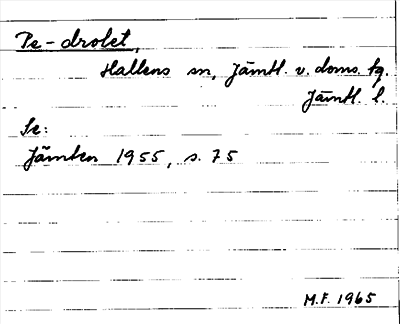 Pe-drolet,
Hallens sn, Jämtl. v. doms. hg.
Jämtl. l.
Se:
Jämten 1955, s. 75
M.F. 1965